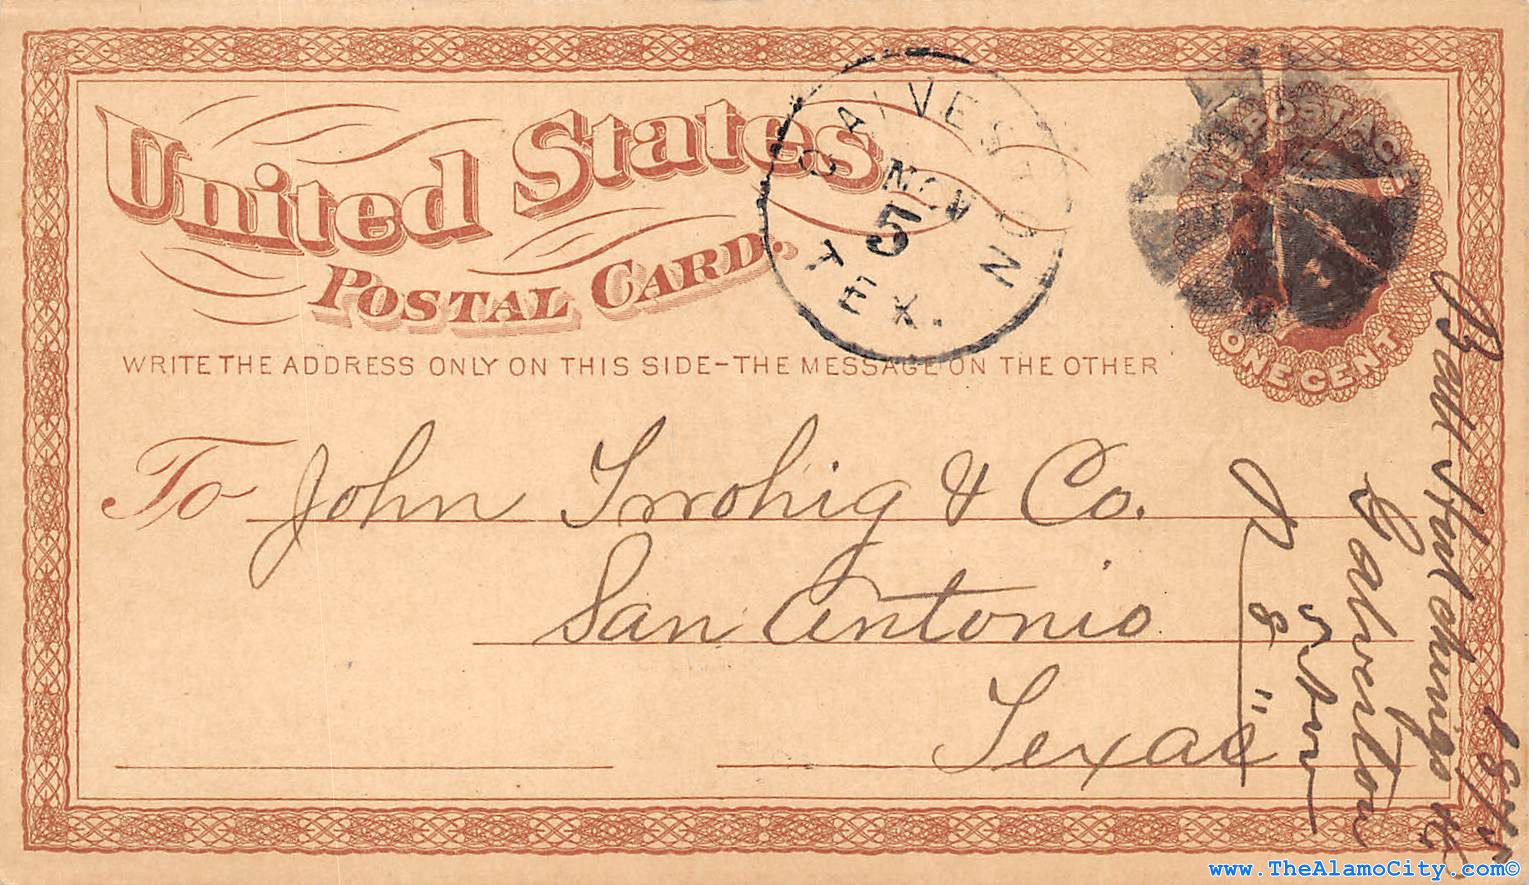 United States
POSTAL CARD.
GALVESTON
NOV
5
TEX.
U.S. POSTAGE
ONE CENT
WRITE THE ADDRESS ONLY ON THIS SIDE-THE MESSAGE ON THE OTHER
To John Twohig & Co.
San Antonio
Texas
Ball Hutchings
Galveston
Nov
R 8 "
1875
www.TheAlamoCity.com©